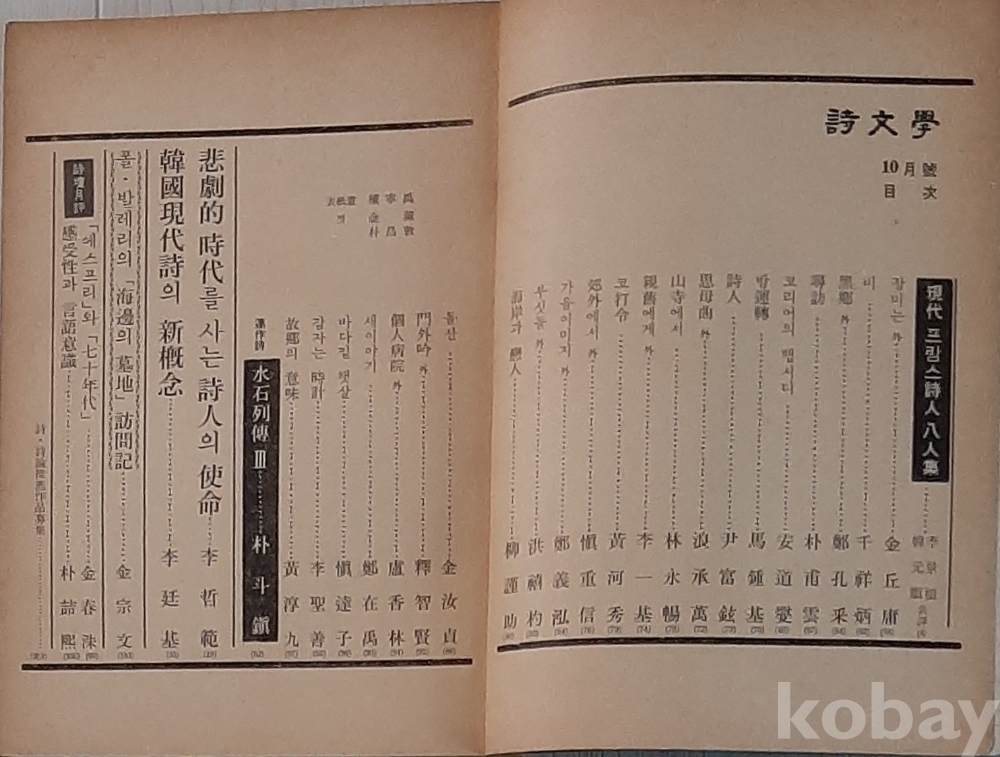 詩文學
10月號
目次
現代 프랑스詩人 八人集
장미는 外 金丘庸
비 千祥炳
黑鄕 外 鄭孔采
尋訪 朴甫雲
코리어의 멥시티 安道燮
馬鍾基
詩人 尹富鉉
思母曲 外 浪承萬
山寺에서 林永暢
親舊에게 外 李一基
코打令 黃河秀
郊外에서 外 愼重信
가을이미지 外 鄭義泓
부싯돌 外 洪禧杓
海岸과 戀人 柳謹助
돌산 金汝貞
門外吟 外 釋智賢
個人病院 外 盧香林
새이야기 鄭在
바다길 햇살 愼達子
감자는 時計 李聖善
故鄕의 意味 黃淳九
連作詩 水石列傳 Ⅲ 朴斗鎭
悲劇的 時代를 사는 詩人의 使命 李哲範
韓國現代詩의 新槪念 李廷基
폴·발레리의 「海邊의 墓地」 訪問記 金宗文
詩壇月評
「에스프리」와 「七十年代」 金春洙
感受性과 言語意識 朴喆熙
詩·詩論推薦作品募集
kobay